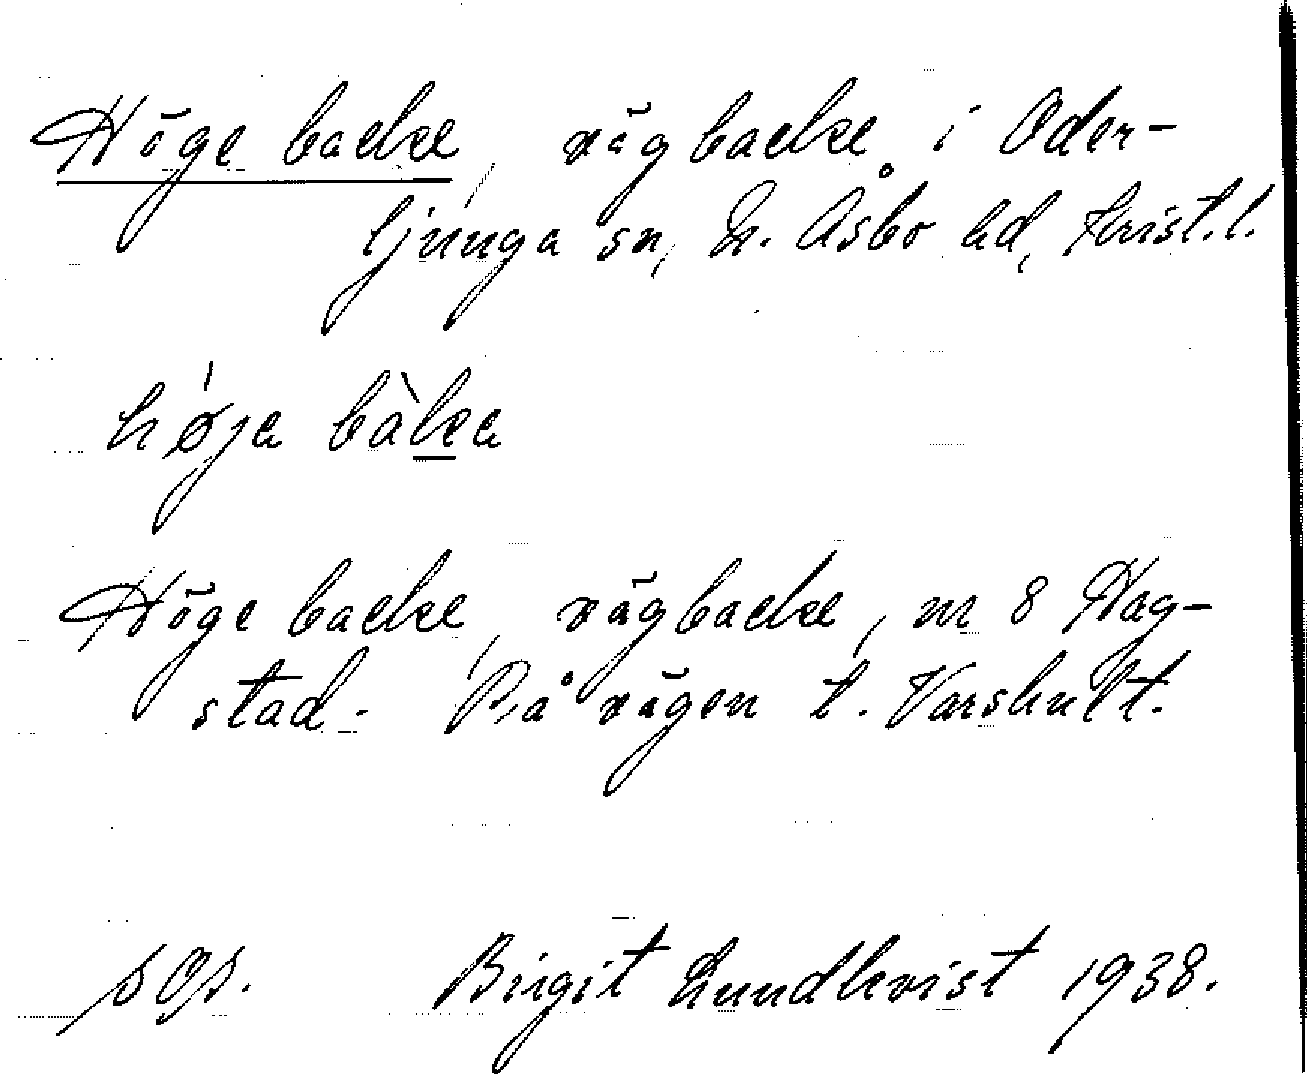 Höge backe, vägbacke i Oder-
ljunga sn, N. Åsbo hd, Krist.l.
høja bàka
Höge backe, vägbacke, nr 8 Hag-
stad. På vägen t. Varshult.
Birgit Lundkvist 1938.